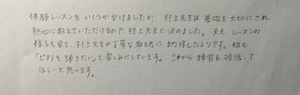 体験レッスンをいくつか受けましたが、村上先生は基礎を大切にされ、
熱心に教えていただけるので村上先生で決めました。夫もレッスンの
様子を見て、村上先生の丁寧な教え方に納得したようです。娘も
「ピアノを弾きたい」と楽しみにしています。これから練習を頑張って
ほしいと思います。